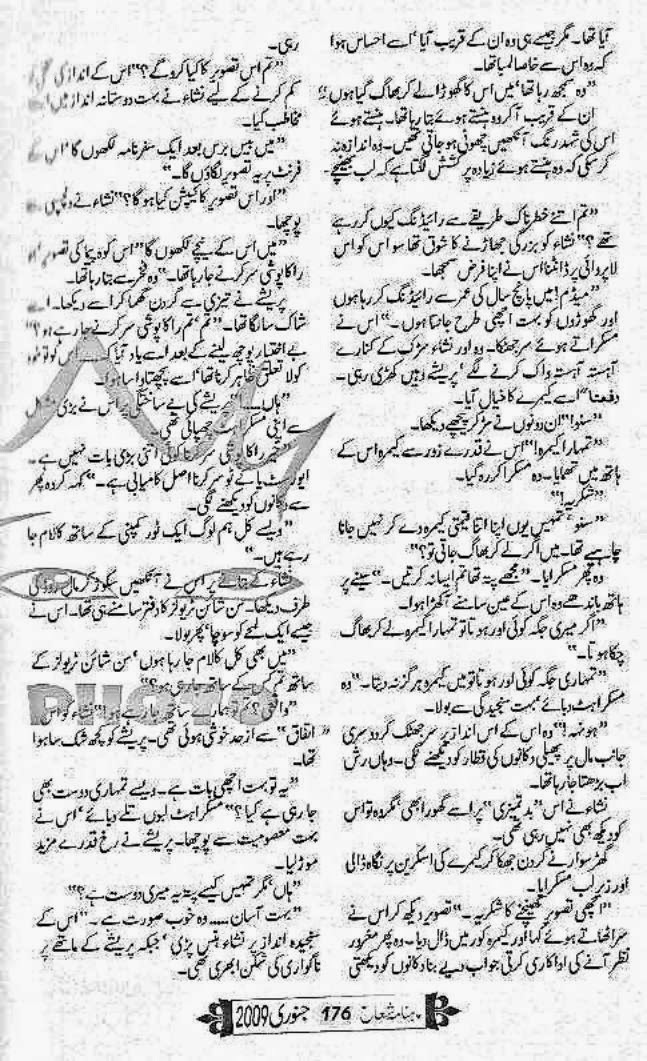 آیا تھا۔ مگر جیسے ہی وہ ان کے قریب آیا، اسے احساس ہوا
کہ وہ اس سے خاصا لمبا تھا۔
"وہ سمجھ رہا تھا، میں اس کا گھوڑا لے کر بھاگ گیا ہوں۔"
ان کے قریب آ کر وہ ہنستے ہوئے بتا رہا تھا۔ ہنستے ہوئے
اس کی شہد رنگ آنکھیں چھوٹی ہو جاتی تھیں۔ وہ اندازہ نہ
کر سکی کہ وہ ہنستے ہوئے زیادہ پرکشش لگتا ہے کہ لب بھینچے۔
"تم اتنے خطرناک طریقے سے رائیڈنگ کیوں کر رہے
تھے؟" نشاء کو بزرگی جھاڑنے کا شوق تھا سو اس کو اس
لاپروائی پر ڈانٹنا اس نے اپنا فرض سمجھا۔
"میڈم! میں پانچ سال کی عمر سے رائیڈنگ کر رہا ہوں
اور گھوڑوں کو بہت اچھی طرح جانتا ہوں۔" اس نے
مسکراتے ہوئے سر جھٹکا۔ وہ اور نشاء سڑک کے کنارے
آہستہ آہستہ واک کرنے لگے، پریشے وہیں کھڑی رہی۔
دفعتا" اسے کیمرے کا خیال آیا۔
"سنو!" ان دونوں نے مڑ کر پیچھے دیکھا۔
"تمہارا کیمرہ!" اس نے قدرے زور سے کیمرہ اس کے
ہاتھ میں تھمایا۔ وہ مسکرا کر رہ گیا۔
"شکریہ!"
"سنو، تمہیں یوں اپنا اتنا قیمتی کیمرہ دے کر نہیں جانا
چاہیے تھا۔ میں اگر لے کر بھاگ جاتی تو؟"
وہ پھر مسکرایا۔ "مجھے پتہ تھا تم ایسا نہ کرتیں۔" سینے پر
ہاتھ باندھے وہ اس کے عین سامنے آ کھڑا ہوا۔
"اگر میری جگہ کوئی اور ہوتا تو تمہارا کیمرہ لے کر بھاگ
چکا ہوتا۔"
"تمہاری جگہ کوئی اور ہوتا تو میں کیمرہ ہرگز نہ دیتا۔" وہ
مسکراہٹ دبائے، بہت سنجیدگی سے بولا۔
"ہونہہ!" وہ اس کے اس انداز پر سر جھٹک کر دوسری
جانب مال پر پھیلی دکانوں کی قطار کو دیکھنے لگی۔ وہاں رش
اب بڑھتا جا رہا تھا۔
نشاء نے اس "بدتمیزی" پر اسے گھورا بھی، مگر وہ تو اس
کو دیکھ بھی نہیں رہی تھی۔
گھڑ سوار نے گردن جھکا کر کیمرے کی اسکرین پر نگاہ ڈالی
اور زیر لب مسکرایا۔
"اچھی تصویر کھینچنے کا شکریہ۔" تصویر دیکھ کر اس نے
سر اٹھاتے ہوئے کہا اور کیمرہ کور میں ڈال دیا۔ وہ پھر مغرور
نظر آنے کی اداکاری کرتی جواب دیے بنا دکانوں کو دیکھتی
رہی۔
"تم اس تصویر کا کیا کرو گے؟" اس کے انداز کی
کم کرنے کے لیے نشاء نے بہت دوستانہ انداز میں اسے
مخاطب کیا۔
"میں بیس برس بعد ایک سفرنامہ لکھوں گا، اس کے
فرنٹ پر یہ تصویر لگاؤں گا۔"
"اور اس تصویر کا کیپشن کیا ہو گا؟" نشاء نے دلچسپی سے
پوچھا۔
"میں اس کے نیچے لکھوں گا، "اس کوہ پیما کی تصویر، جو
راکاپوشی سر کرنے جا رہا تھا۔" وہ فخر سے بتا رہا تھا۔
پریشے نے تیزی سے گردن گھما کر اسے دیکھا۔ اسے
شاک سا لگا تھا۔ "تم، تم راکاپوشی سر کرنے جا رہے ہو؟"
بے اختیار پوچھ لینے کے بعد اسے یاد آیا کہ... اس کو تو خود
کو لاتعلق ظاہر کرنا تھا، اسے پچھتاوا سا ہوا۔
"ہاں...." پریشے کی بے ساختگی پر اس نے بڑی مشکل
سے اپنی مسکراہٹ چھپائی تھی۔
"خیر راکاپوشی سر کرنا کوئی اتنی بڑی بات نہیں ہے۔
ایورسٹ یا کے ٹو سر کرنا اصل کامیابی ہے۔" کہہ کر وہ پھر
سے دکانوں کو دیکھنے لگی۔
"ویسے کل ہم لوگ ایک ٹور کمپنی کے ساتھ کالام جا
رہے ہیں۔"
نشاء کے بتانے پر اس نے آنکھیں سکوڑ کر مال روڈ کی
طرف دیکھا۔ سن شائن ٹریولز کا دفتر سامنے ہی تھا۔ اس نے
جیسے ایک لمحے کو سوچا، پھر بولا۔
"میں بھی کل کالام جا رہا ہوں، سن شائن ٹریولز کے
ساتھ تم کس کے ساتھ جا رہی ہو؟"
"واقعی؟ تم تو ہمارے ساتھ جا رہے ہو!" نشاء کو اس
"اتفاق" سے از حد خوشی ہوئی تھی۔ پریشے کو کچھ شک سا ہوا
تھا۔
"یہ تو بہت اچھی بات ہے۔ ویسے تمہاری دوست بھی
جا رہی ہے کیا؟" مسکراہٹ لبوں تلے دبائے، اس نے
بہت معصومیت سے پوچھا۔ پریشے نے رخ قدرے مزید
موڑ لیا۔
"ہاں، مگر تمہیں کیسے پتہ یہ میری دوست ہے؟"
"بہت آسان..... وہ خوب صورت ہے۔" اس کے
سنجیدہ انداز پر نشاء ہنس پڑی، جبکہ پریشے کے ماتھے پر
ناگواری کی شکن ابھری تھی۔
ماہنامہ شعاع 176 جنوری 2009